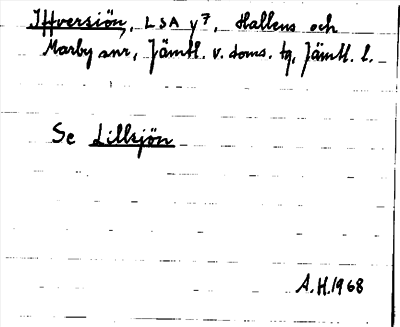 Iffversjön, LSA y7, Hallens och
Marby snr, Jämtl. v. doms. tg, Jämtl. l.
Se Lillsjön
A.H. 1968